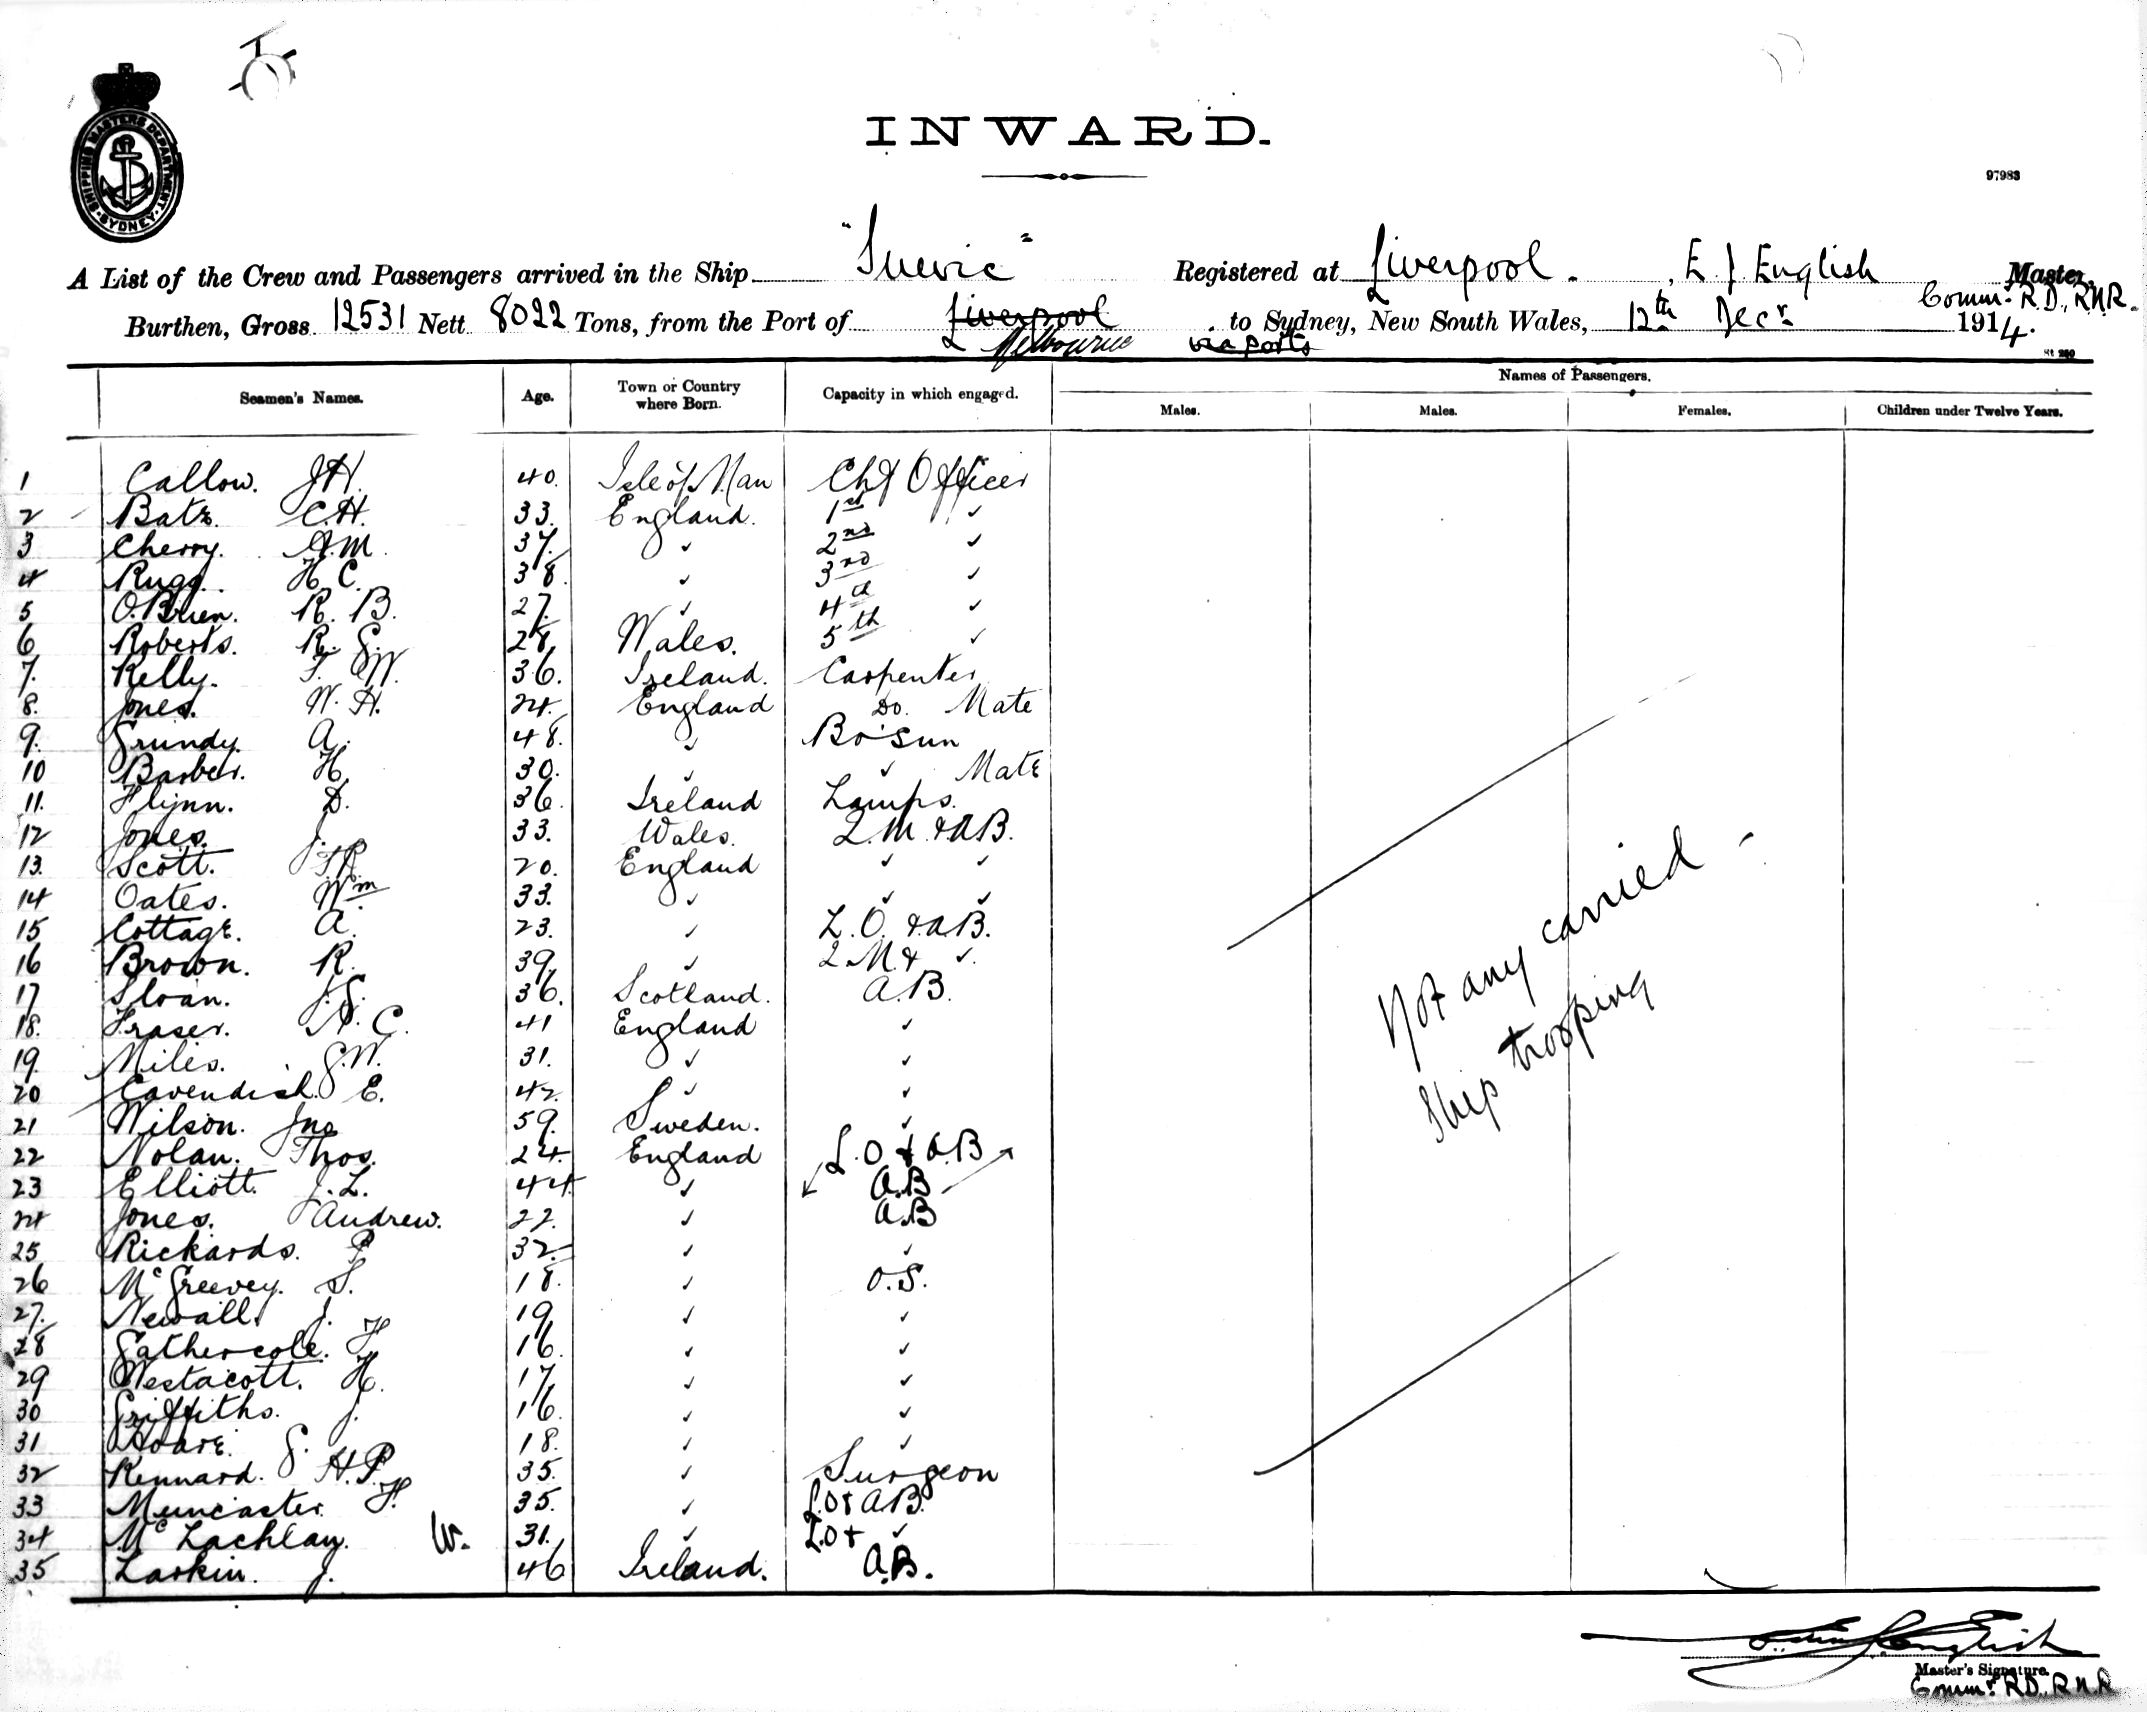 SHIPPING MASTERS DEPARTMENT
SYDNEY
INWARD.
97983
A List of the Crew and Passengers arrived in the Ship "Suevic" Registered at Liverpool. , E. J. English Master,
Comm. R.D., R.N.R.
Burthen, Gross 12531 Nett 8022 Tons, from the Port of Liverpool . to Sydney, New South Wales, 12th Decr 1914.
Melbourne via ports
Seamen's Names. Age. Town or Country where Born. Capacity in which engaged. Names of Passengers.
Males. Males. Females. Children under Twelve Years.
1 Callow. J.H. 40. Isle of Man Chf Officer
2 Batz. C.H. 33. England. 1st ✓
3 Cherry. A.M. 37. ✓ 2nd ✓
4 Rugg. H.C. 38. ✓ 3rd ✓
5 O.Brien. R. B. 27. ✓ 4th ✓
6 Roberts. R. G. 28. Wales. 5th ✓
7. Kelly. F. W. 36. Ireland. Carpenter
8. Jones. W. H. 24. England Do. Mate
9. Grundy. A. 48. ✓ Bo'sun
10 Barber. H. 30. ✓ ✓ Mate
11. Flynn. D. 36. Ireland Lamps.
12 Jones. J. 33. Wales. Q.M. & A.B.
13. Scott. 20. England ✓ ✓
14 Oates. Wm 33. ✓ ✓ ✓
15 Cottage. A. 23. ✓ L.O. & A.B.
16 Brown. R. 39. ✓ Q.M. & ✓.
17 Sloan. J.G. 36. Scotland. A.B.
18. Fraser. A. C. 41 England ✓
19 Miles. G.W. 31. ✓ ✓
20 Cavendish. E. 42. ✓ ✓
21 Wilson. Jno 59. Sweden. ✓
22 Nolan. Thos. 24. England L.O & A.B
23 Elliott. J.L. 44. ✓ A.B
24 Jones. Andrew. 22. ✓ A.B
25 Rickards. P. 32. ✓ ✓
26 McGreevey. S. 18. ✓ O.S.
27. Newall. J. 19 ✓ ✓
28 Gathercole. F. 16. ✓ ✓
29 Westacott. H. 17 ✓ ✓
30 Griffiths. J. 16. ✓ ✓
31 Hoare. G. 18. ✓ ✓
32 Kennard. H.P. 35. ✓ Surgeon
33 Muncaster. F. 35. ✓ L.O & A.B.
34 Mc Lachlan. W. 31. ✓ L.O & ✓
35 Larkin. J. 46 Ireland. A.B.
Not any carried -
Ship trooping
English
Master's Signature.
Commr. R.D., R.N.R